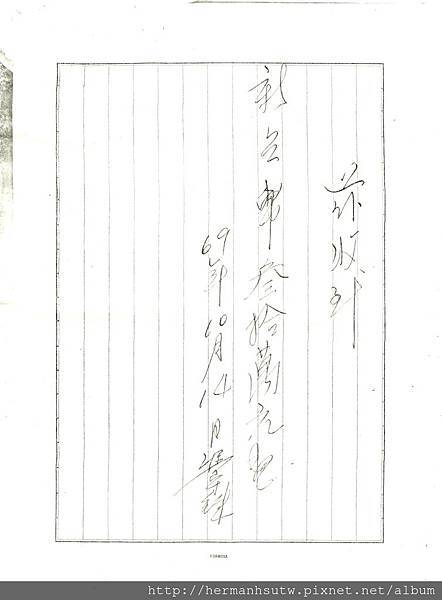 茲收到
新台幣叁拾萬元正
69年10月14日
FORMOSA
http://hermanhsutw.pixnet.net/album